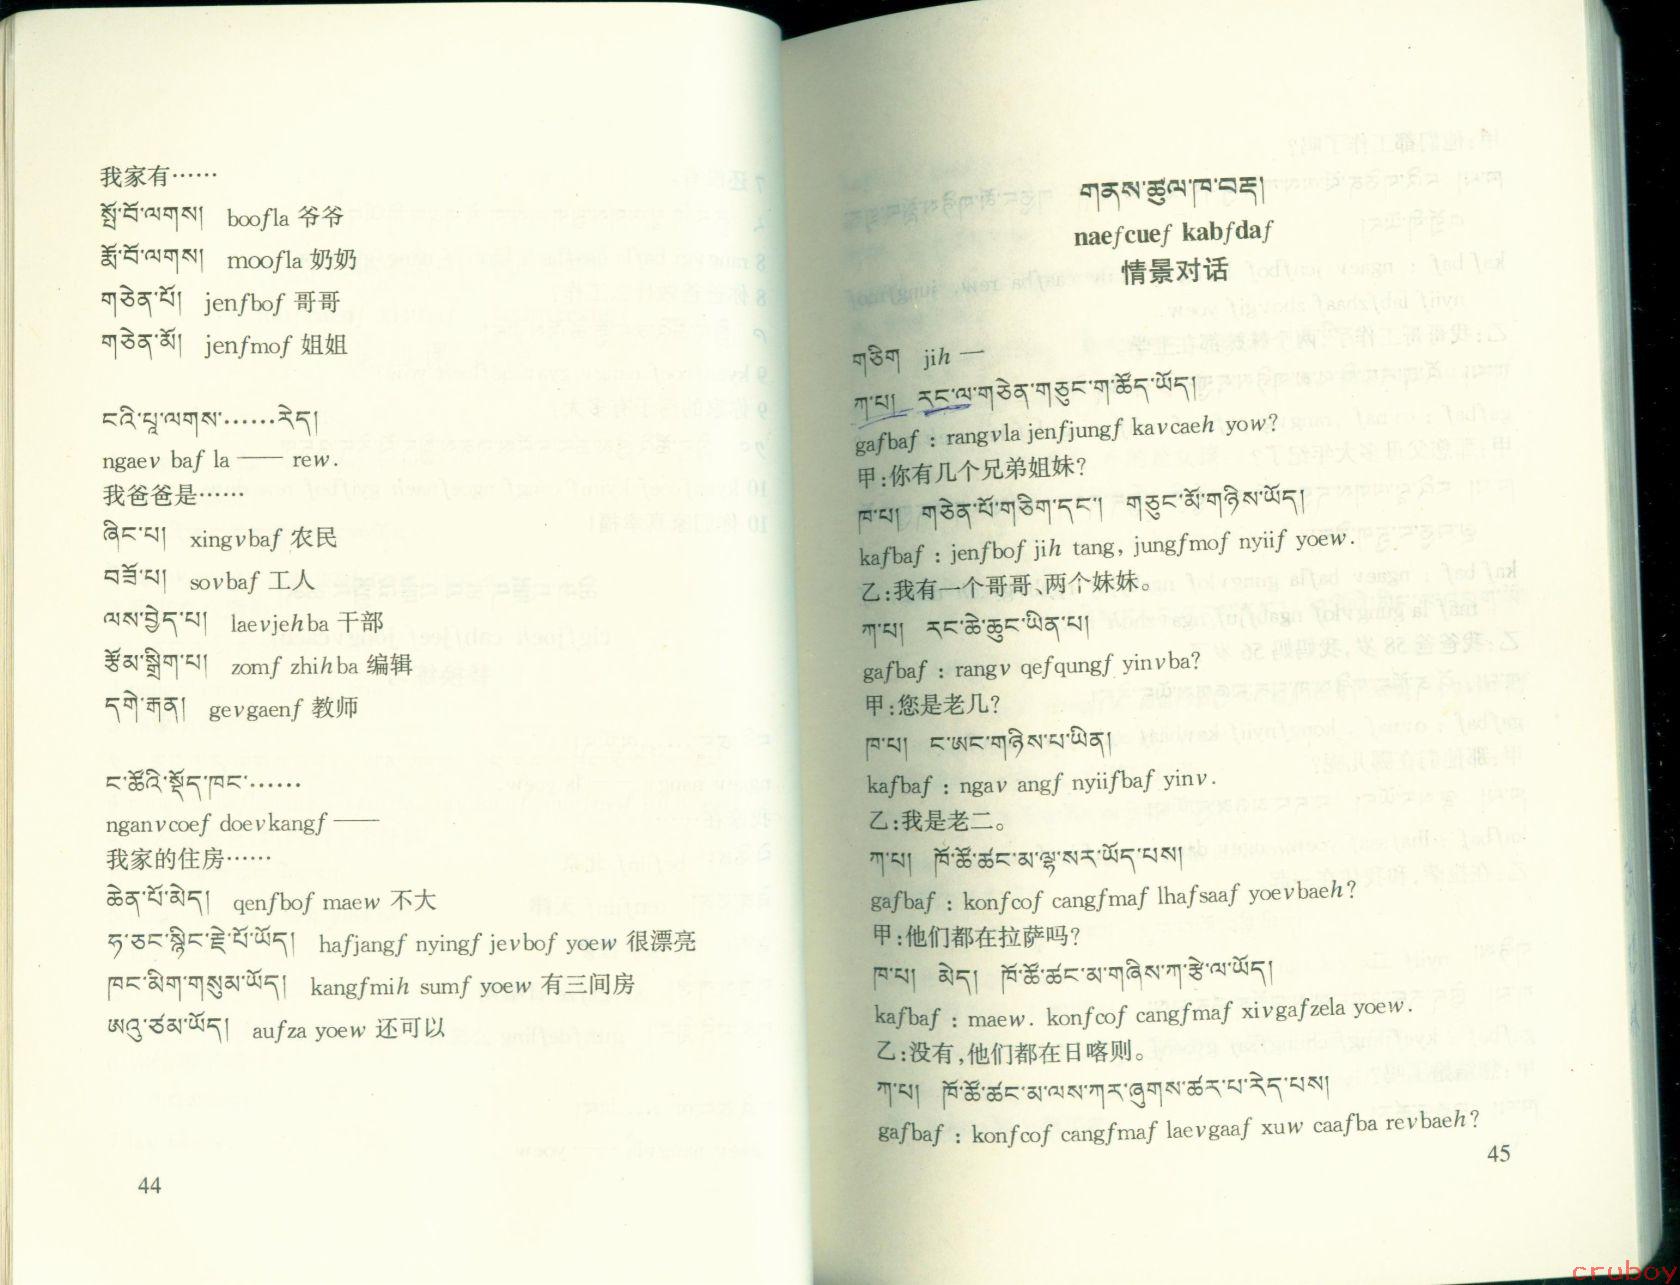 我家有……
སྤོ་བོ་ལགས། boofla 爷爷
རྨོ་བོ་ལགས། moofla 奶奶
གཅེན་པོ། jenfbof 哥哥
གཅེན་མོ། jenfmof 姐姐
ངའི་པཱ་ལགས་……རེད།
ngaev baf la —— rew.
我爸爸是……
ཞིང་པ། xingvbaf 农民
བཟོ་པ། sovbaf 工人
ལས་བྱེད་པ། laevjehba 干部
རྩོམ་སྒྲིག་པ། zomf zhihba 编辑
དགེ་རྒན། gevgaenf 教师
ང་ཚོའི་སྡོད་ཁང་……
nganvcoef doevkangf ——
我家的住房……
ཆེན་པོ་མེད། qenfbof maew 不大
ཧ་ཅང་སྙིང་རྗེ་པོ་ཡོད། hafjangf nyingf jevbof yoew 很漂亮
ཁང་མིག་གསུམ་ཡོད། kangfmih sumf yoew 有三间房
ཨའུ་ཙམ་ཡོད། aufza yoew 还可以
44
གནས་ཚུལ་ཁ་བརྡ།
naefcuef kabfdaf
情景对话
གཅིག jih 一
ཀ་པ། རང་ལ་གཅེན་གཅུང་ག་ཚོད་ཡོད།
gafbaf : rangvla jenfjungf kavcaeh yow?
甲:你有几个兄弟姐妹?
ཁ་པ། གཅེན་པོ་གཅིག་དང་། གཅུང་མོ་གཉིས་ཡོད།
kafbaf : jenfbof jih tang, jungfmof nyiif yoew.
乙:我有一个哥哥、两个妹妹。
ཀ་པ། རང་ཆེ་ཆུང་ཡིན་པ།
gafbaf : rangv qefqungf yinvba?
甲:您是老几?
ཁ་པ། ང་ཨང་གཉིས་པ་ཡིན།
kafbaf : ngav angf nyiifbaf yinv.
乙:我是老二。
ཀ་པ། ཁོ་ཚོ་ཚང་མ་ལྷ་སར་ཡོད་པས།
gafbaf : konfcof cangfmaf lhafsaaf yoevbaeh?
甲:他们都在拉萨吗?
ཁ་པ། མེད། ཁོ་ཚོ་ཚང་མ་གཞིས་ཀ་རྩེ་ལ་ཡོད།
kafbaf : maew. konfcof cangfmaf xivgafzela yoew.
乙:没有,他们都在日喀则。
ཀ་པ། ཁོ་ཚོ་ཚང་མ་ལས་ཀར་ཞུགས་ཚར་པ་རེད་པས།
gafbaf : konfcof cangfmaf laevgaaf xuw caafba revbaeh?
45
cruboy